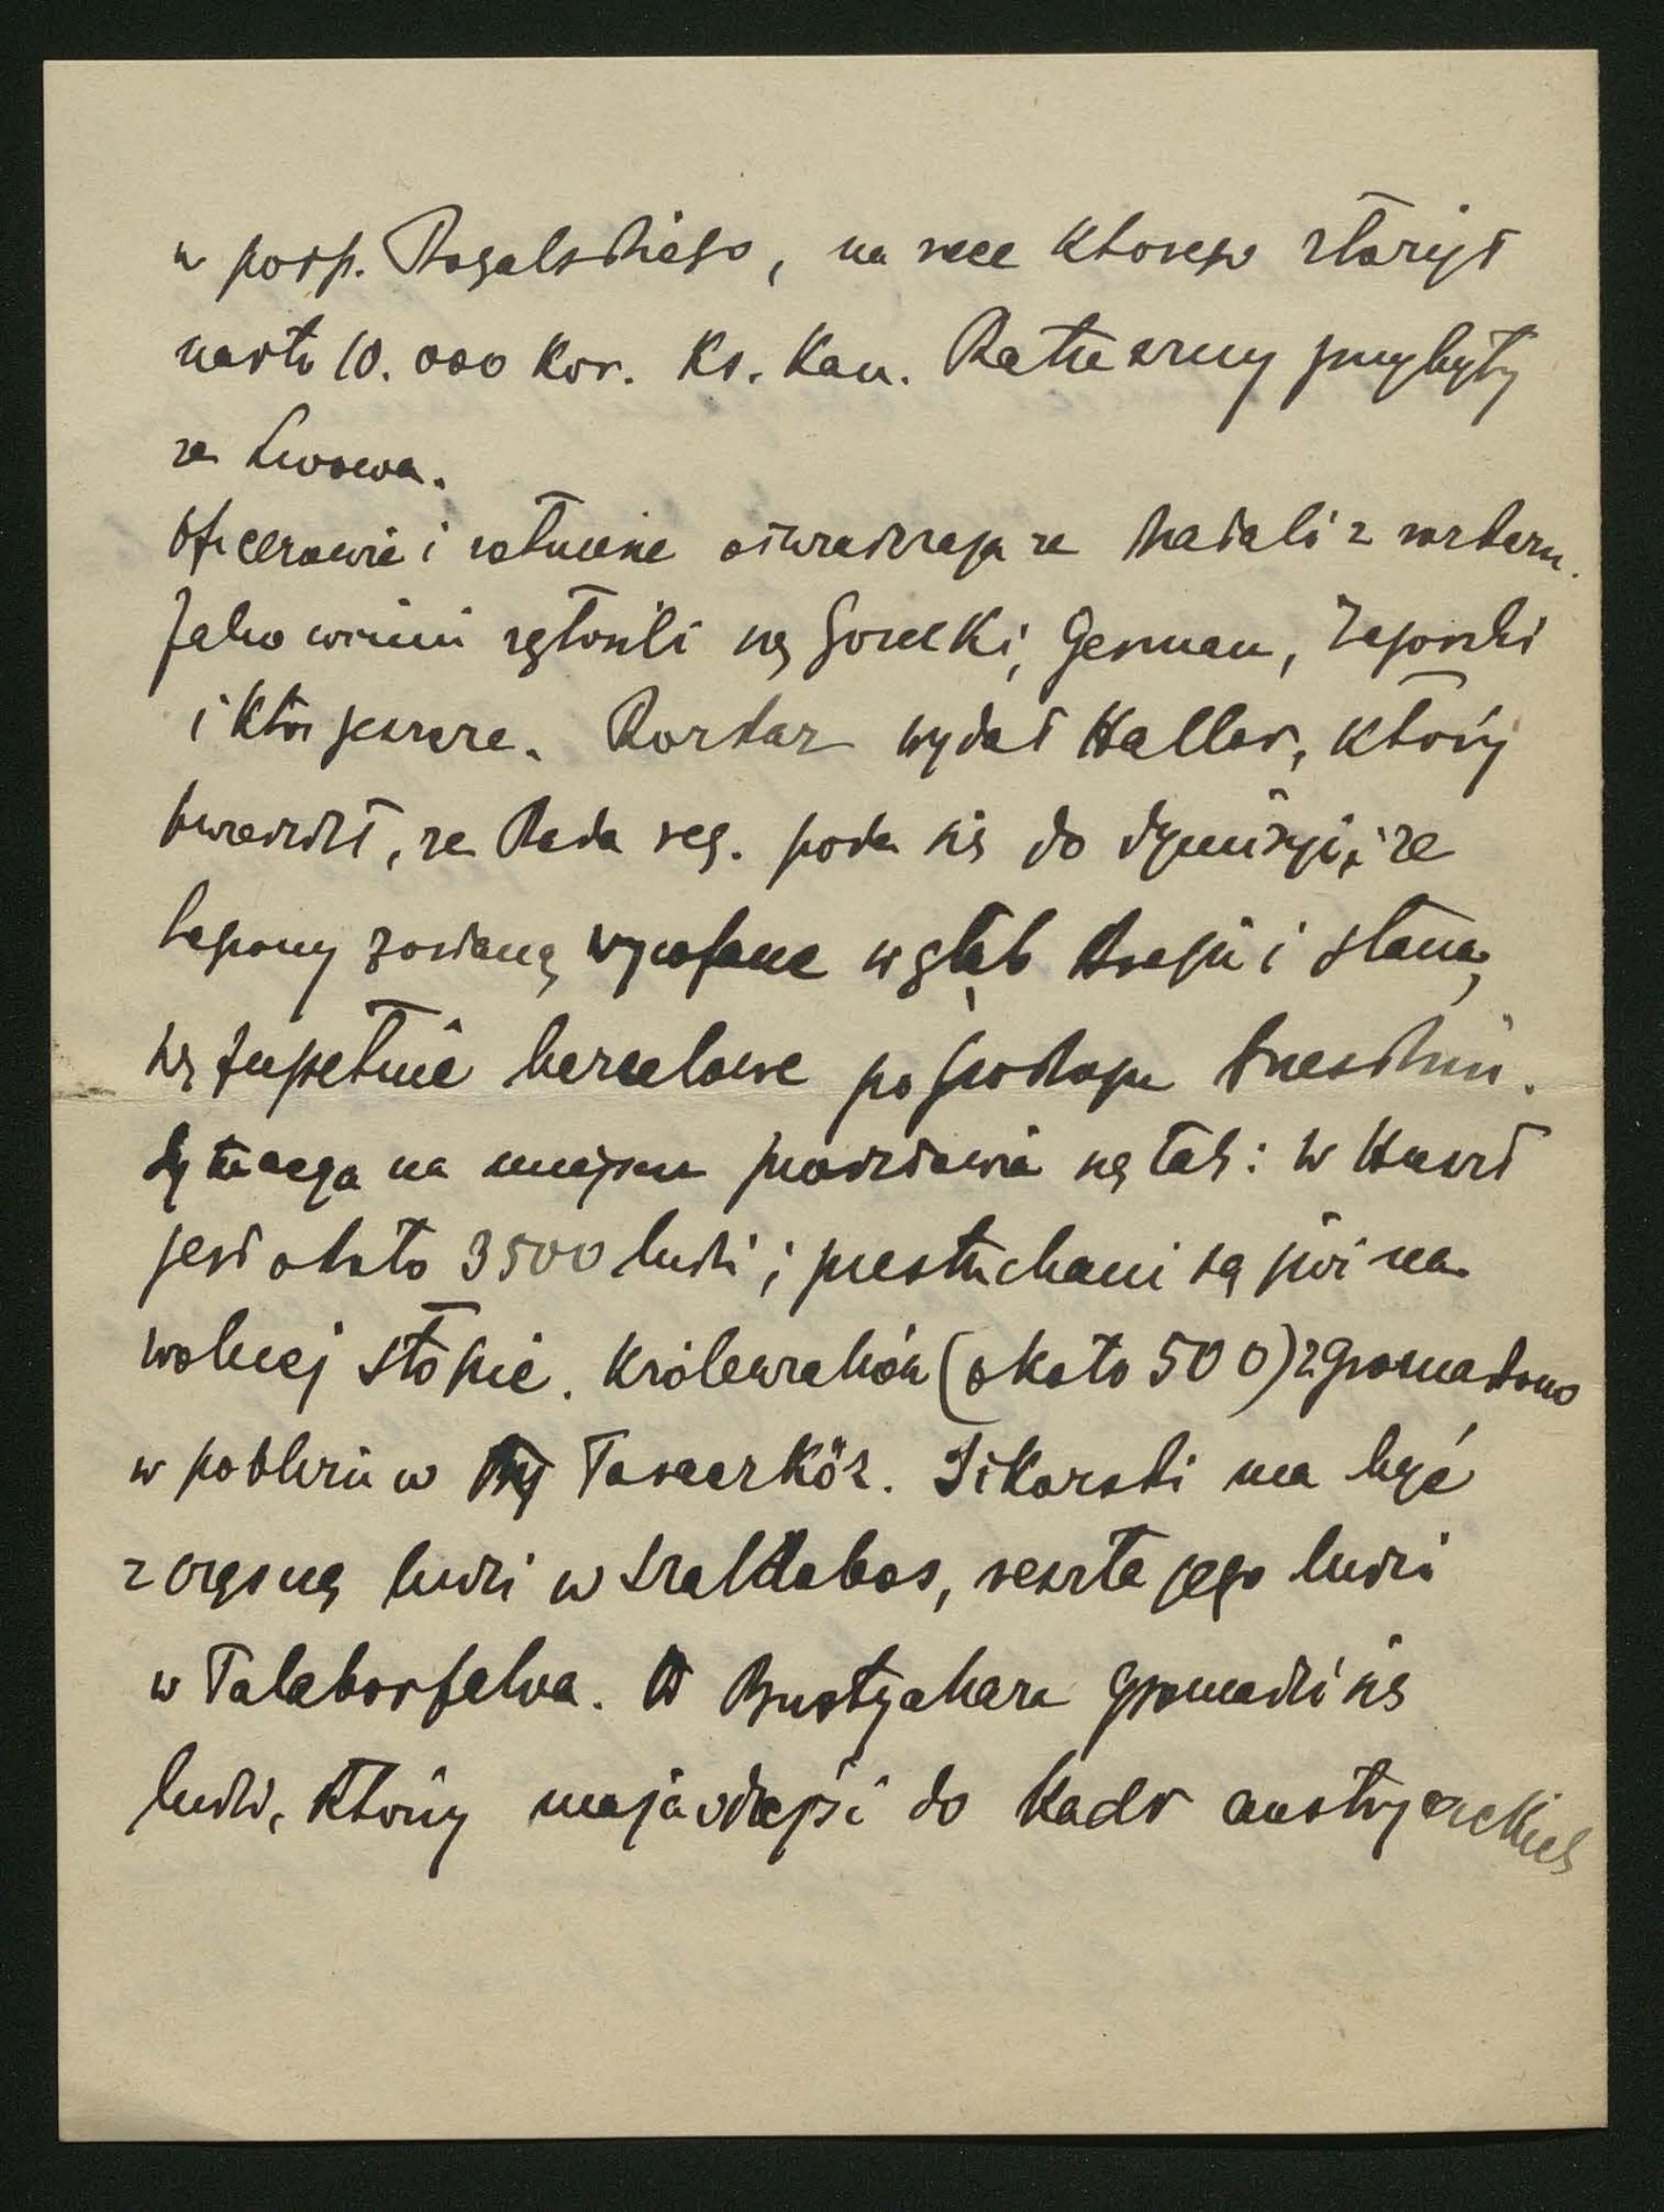 w posp. Rogalskiego, na ręce którego złożył
nadto 10.000 kor. Ks. Kan. przybyły
ze Lwowa.
Oficerowie i żołnierze oświadczają że działali z rozkazu.
Jako winni zgłosili się Gorecki, German, Zagórski
i ktoś jeszcze. Rozkaz wydał Haller, który
twierdził, że Rada reg. poda się do dymisyi, i że
legiony zostaną wycofane w głąb kraju i staną
się zupełnie bezcelowe po pokoju brzeskim.
Sytuacya na miejscu przedstawia się tak: w Huszt
jest około 3500 ludzi; przesłuchani są już na
wolnej stopie. Królewiaków (około 500) zgromadzono
w pobliżu w Taraczköz. Sikorski ma być
z częścią ludzi w Szaldobos, reszta jego ludzi
w Talaborfalva. W Bustyahaza gromadzi się
ludzi, którzy mają odejść do kadr austryackich